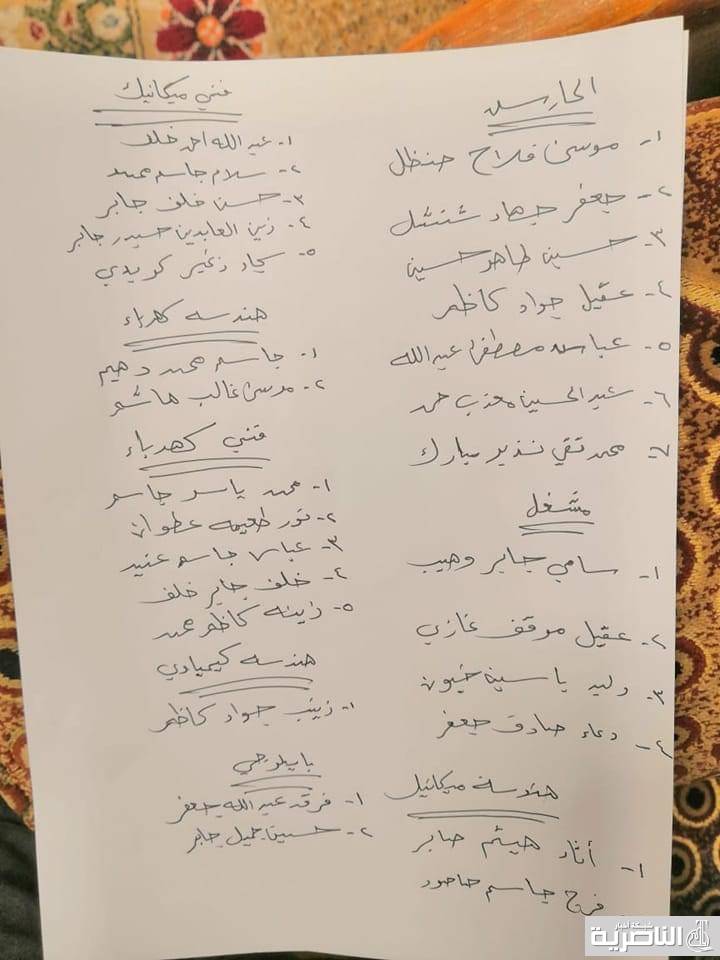 الحارس
١- موسى فلاح حنظل
٢- جعفر جهاد شنشل
٣- حسين طاهر حسين
٤- عقيل جواد كاظم
٥- عباس مصطفى عبد الله
٦- عبد الحسين معذب حمد
٧- محمد تقي نذير مبارك
مشغل
١- سامي جابر وهيب
٢- عقيل موقف غازي
٣- وليد ياسين خيون
٤- دعاء صادق جعفر
هندسة ميكانيك
١- هيثم صابر
فرج جاسم
فني ميكانيك
١- عبد الله احمد خلف
٢- سلام جاسم محمد
٣- حسن خلف جابر
٤- زين العابدين حيدر جابر
٥- سجاد زغير كويدي
هندسه كهرباء
١- جاسم محمد دهيم
٢- موسى غالب هاشم
فني كهرباء
١- محمد ياسر جاسم
٢- نور طعيمه عطوان
٣- عباس جاسم عنيد
٤- خلف جابر خلف
٥- زينه كاظم محمد
هندسه كيمياوي
١- زينب جواد كاظم
بايلوجي
١- فرقد عبد الله جعفر
٢- حسين جميل جابر
شبكة اخبار
الناصرية